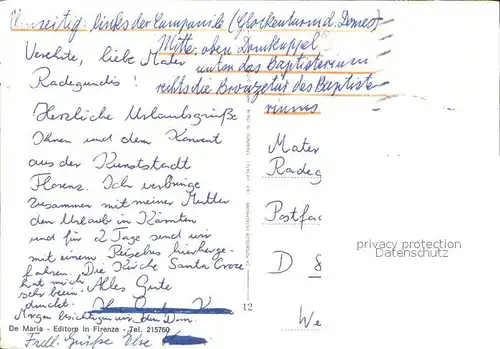 Umseitig: links der Campanile (Glockenturm d. Domes)
Mitte: oben Domkuppel
unten das Baptisterium
rechts die Bronzetür des Baptiste
riums
Verehrte, liebe Mater
Radegundis!
Herzliche Urlaubsgrüße
Ihnen und dem Konvent
aus der Kunststadt
Florenz. Ich verbringe
zusammen mit meiner Mutter
den Urlaub in Kärnten
und für 2 Tage sind wir
mit einem Reisebus hierherge-
fahren. Die Kirche Santa Croce
hat mich
sehr beein-
druckt.
Alles Gute
Morgen besichtigen wir den Dom.
De Maria - Editore in Firenze - Tel. 215760
Frdl. Grüße Ilse
12
Mater
Radeg
Postfac
D 8
We
privacy protection
Datenschutz